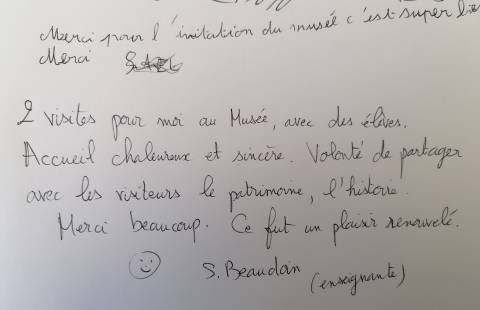 Merci pour l'invitation du musée c'est super
Merci
2 visites pour moi au Musée, avec des élèves.
Accueil chaleureux et sincère. Volonté de partager
avec les visiteurs le patrimoine, l'histoire.
Merci beaucoup. Ce fut un plaisir renouvelé.
S. Beaudoin (enseignante)